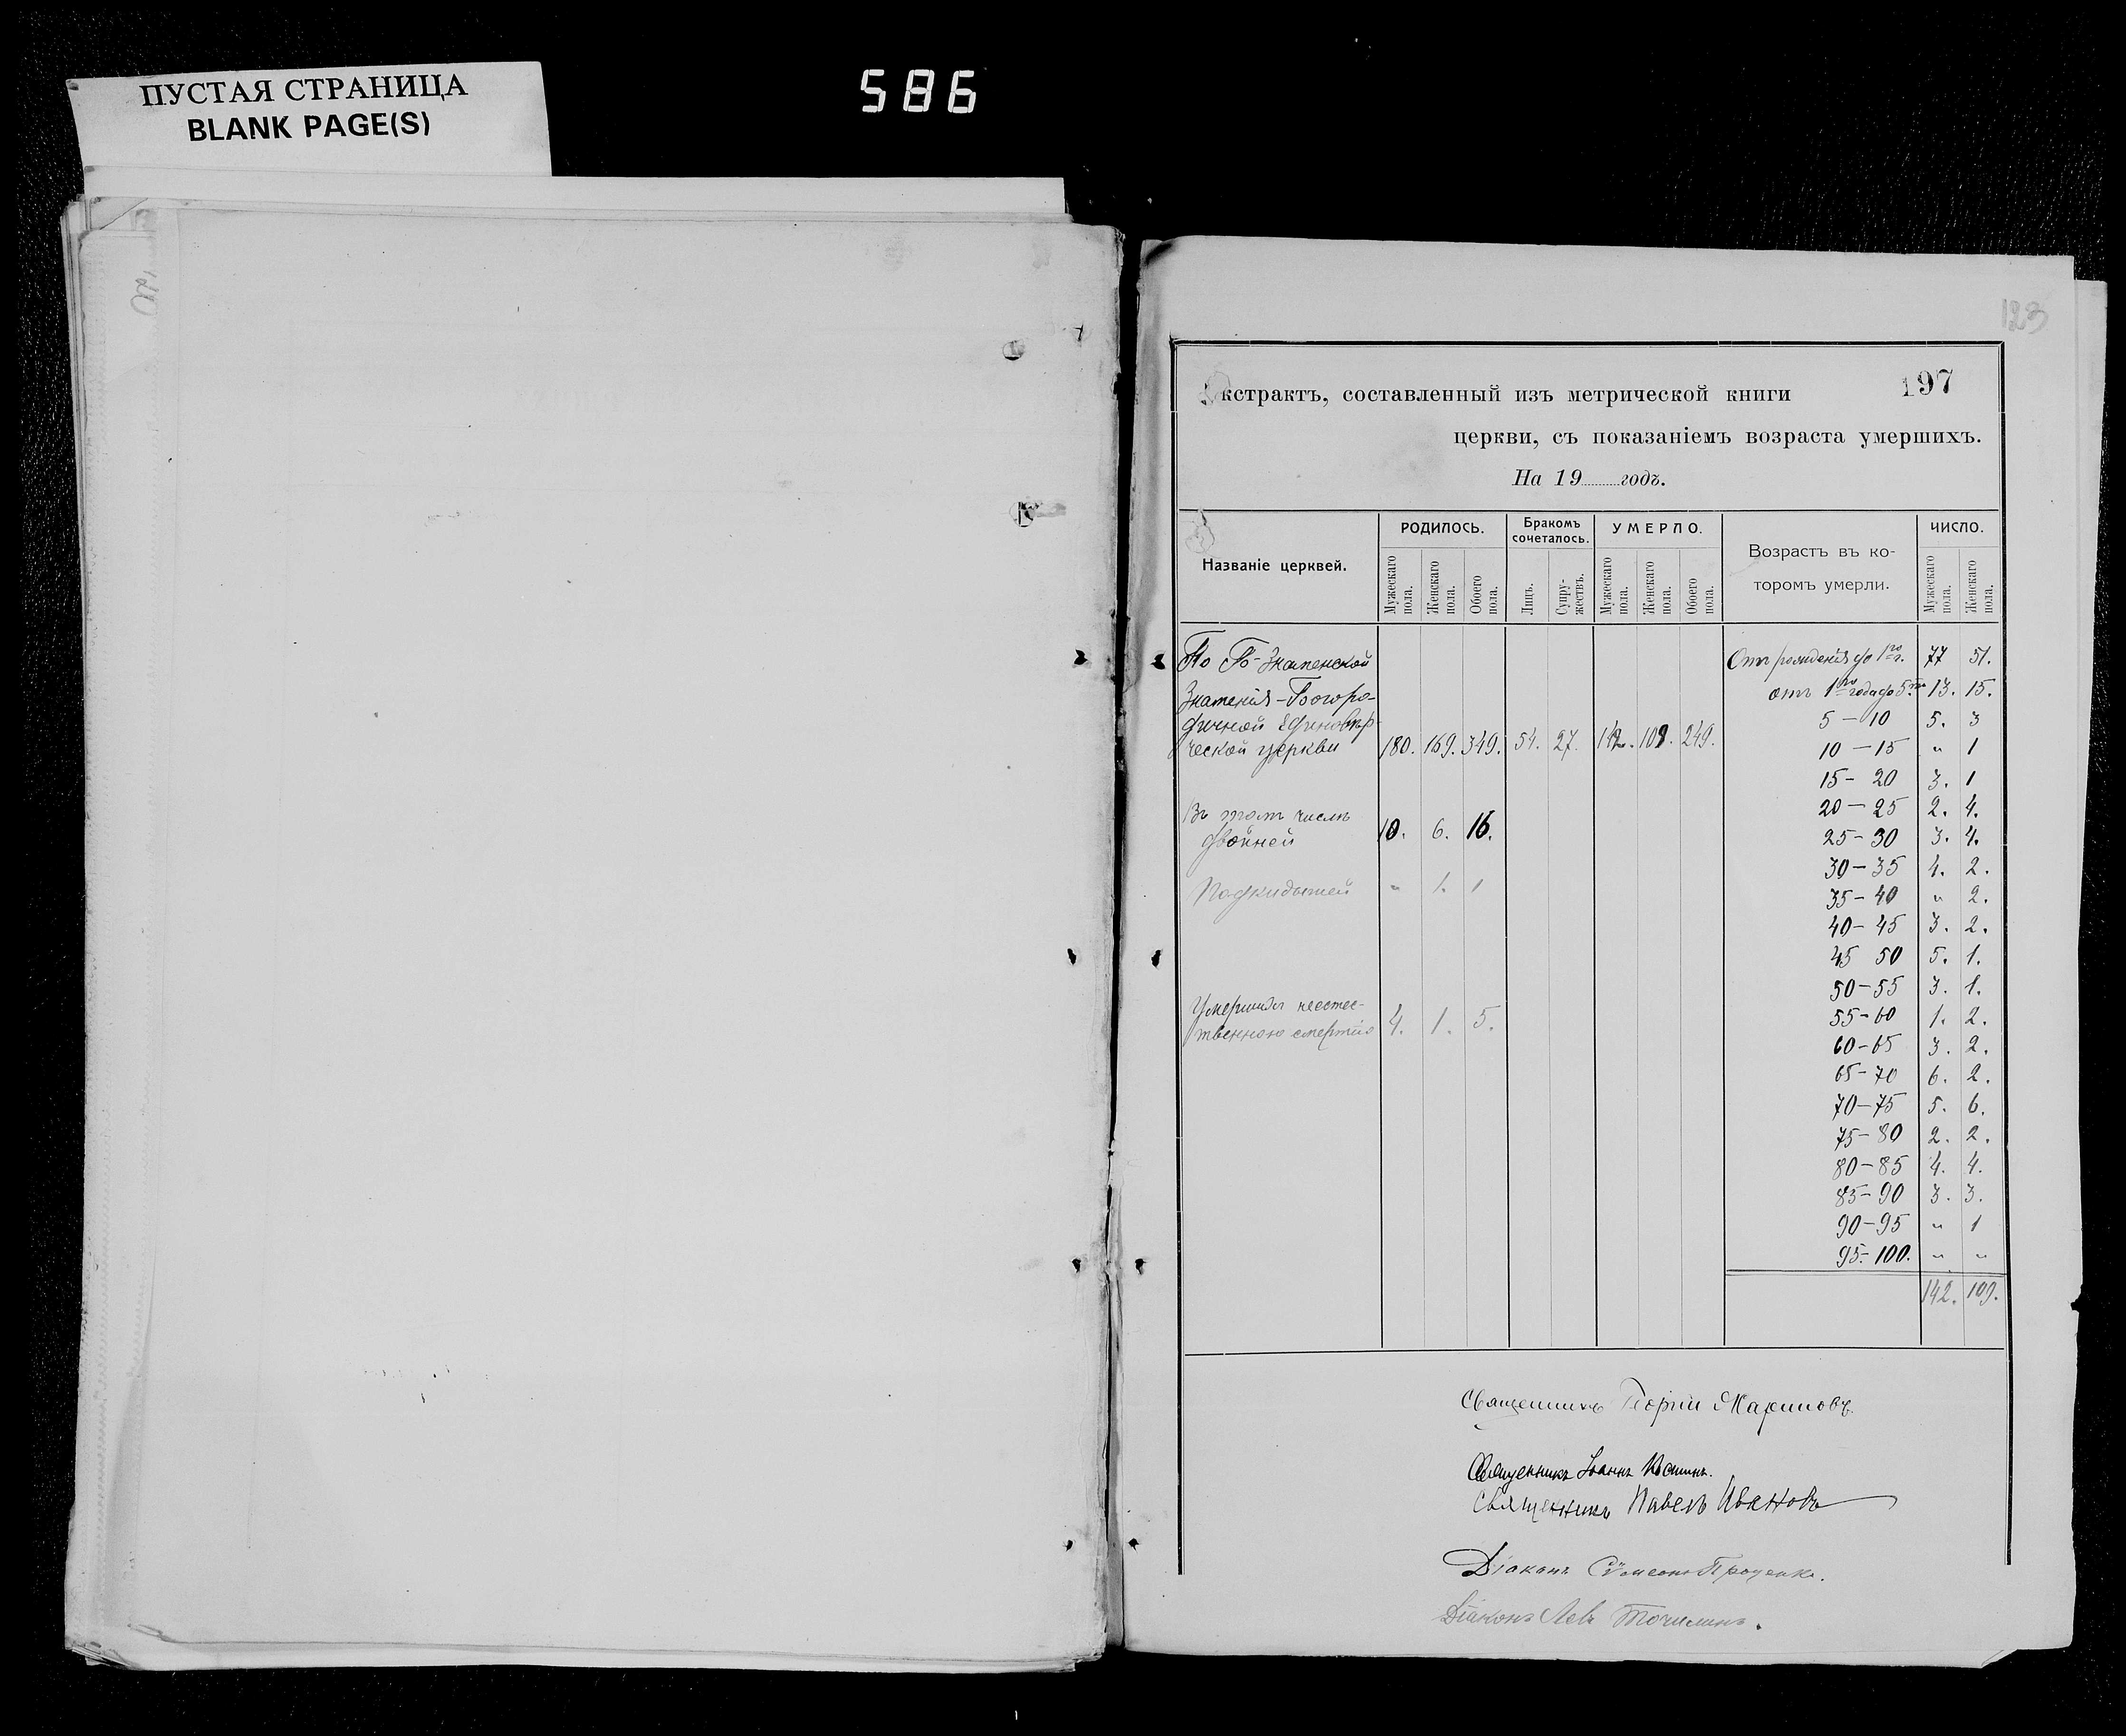 ПУСТАЯ СТРАНИЦА
BLANK PAGE(S)
586
123
197
кстрактъ, составленный изъ метрической книги
церкви, съ показаніемъ возраста умершихъ.
На 19 годъ.
Названіе церквей.
РОДИЛОСЬ.
Бракомъ сочеталось.
УМЕРЛО.
Возрастъ въ ко-
торомъ умерли.
ЧИСЛО.
Мужескаго пола.
Женскаго пола.
Обоего пола.
Лицъ.
Супру-
жествъ.
Мужескаго пола.
Женскаго пола.
Обоего пола.
Мужескаго пола.
Женскаго пола.
По Б-Знаменской
Знаменія-Богоро-
дичной Единовѣр-
ческой церкви 180. 169. 349. 54. 27. 142. 109. 249.
Въ томъ числѣ
двойней 10. 6. 16.
Подкидышей " 1. 1
Умершихъ неестес-
твенною смертію 4. 1. 5.
Отъ рожденія до 1го г. 77 51.
отъ 1го года до 5ти 13. 15.
5 - 10 5. 3
10 - 15 " 1
15 - 20 3. 1
20 - 25 2. 4.
25 - 30 3. 4.
30 - 35 4. 2.
35 - 40 " 2.
40 - 45 3. 2.
45 50 5. 1.
50 - 55 3. 1.
55 - 60 1. 2.
60 - 65 3. 2.
65 - 70 6. 2.
70 - 75 5. 6.
75 - 80 2. 2.
80 - 85 4. 4.
85 - 90 3. 3.
90 - 95 " 1
95 - 100. " "
142. 109.
Священникъ Георгій
Священникъ Іоаннъ
Священникъ Павелъ Ивановъ
Діаконъ Сѵмеонъ Проценко.
Діаконъ Левъ Точилинъ.